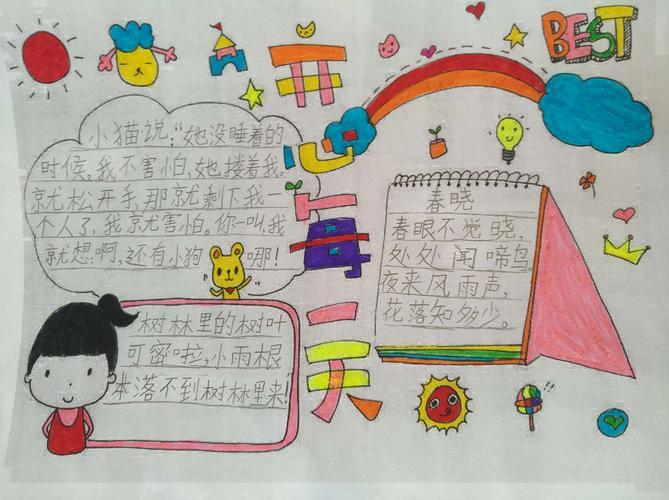 BEST
开
心
每
一
天
小猫说:“她没睡着的
时候,我不害怕,她搂着我。
就松开手,那就剩下我一
个人了,我就害怕。你一叫,我
就想:啊,还有小狗哪!
树林里的树叶
可密啦,小雨根
本落不到树林里来!
春晓
春眠不觉晓,
处处闻啼鸟。
夜来风雨声,
花落知多少。